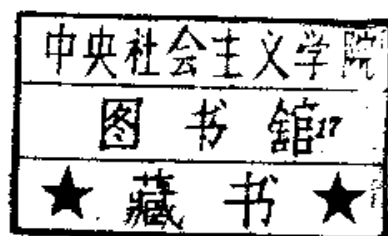 中央社会主义学院
图书馆17
★藏书★